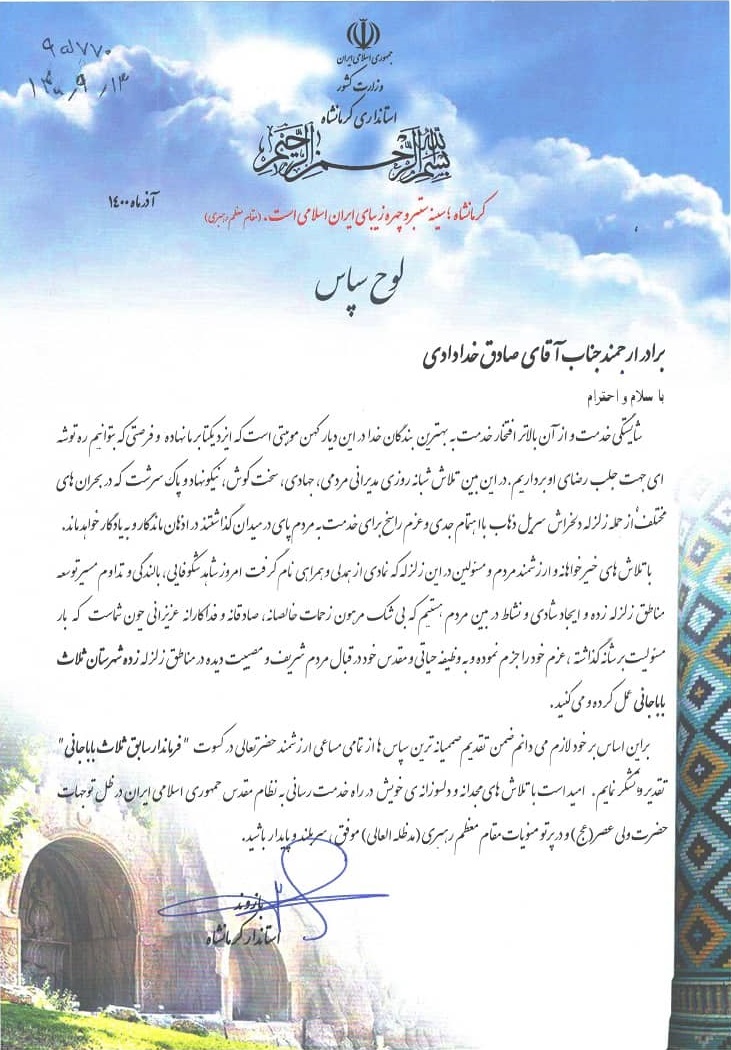 جمهوری اسلامی ایران
وزارت کشور
استانداری کرمانشاه
بسم الله الرحمن الرحیم
۹۵۷۷۰
آذرماه ۱۴۰۰
کرمانشاه ؛ سینه ستبر و چهره زیبای ایران اسلامی است. (مقام معظم رهبری)
لوح سپاس
برادر ارجمند جناب آقای صادق خدادادی
با سلام و احترام
شایستگی خدمت و از آن بالاتر افتخار خدمت به بهترین بندگان خدا در این دیار کهن موهبتی است که ایزد یکتا بر ما نهاده و فرصتی که بتوانیم ره توشه
ای جهت جلب رضای او برداریم. در این بین تلاش شبانه روزی مدیرانی مردمی، جهادی، سخت کوش، نیکونهاد و پاک سرشت که در بحران های
مختلف از جمله زلزله دلخراش سرپل ذهاب با اهتمام جدی و عزم راسخ برای خدمت به مردم پای در میدان گذاشتند در اذهان ماندگار و به یادگار خواهد ماند.
با تلاش های خیرخواهانه و ارزشمند مردم و مسئولین در این زلزله که نمادی از همدلی و همراهی نام گرفت امروز شاهد شکوفایی، بالندگی و تداوم مسیر توسعه
مناطق زلزله زده و ایجاد شادی و نشاط در بین مردم هستیم که بی شک مرهون زحمات خالصانه، صادقانه و فداکارانه عزیزانی چون شماست که بار
مسئولیت بر شانه گذاشته، عزم خود را جزم نموده و به وظیفه حیاتی و مقدس خود در قبال مردم شریف و مصیبت دیده در مناطق زلزله زده شهرستان ثلاث
باباجانی عمل کرده و می کنید.
براین اساس بر خود لازم می دانم ضمن تقدیم صمیمانه ترین سپاس ها از تمامی مساعی ارزشمند حضرتعالی در کسوت "فرماندار سابق ثلاث باباجانی"
تقدیر و تشکر نمایم. امید است با تلاش های مجدانه و دلسوزانه ی خویش در راه خدمت رسانی به نظام مقدس جمهوری اسلامی ایران در ظل توجهات
حضرت ولی عصر(عج) و در پرتو منویات مقام معظم رهبری (مدظله العالی) موفق، سربلند و پایدار باشید.
بازوند
استاندار کرمانشاه